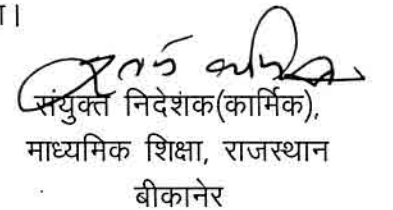 ा।
संयुक्त निदेशक(कार्मिक),
माध्यमिक शिक्षा, राजस्थान
बीकानेर